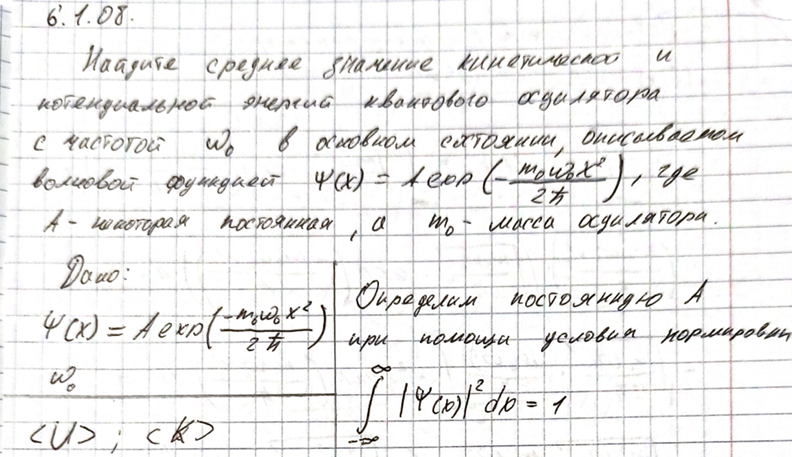 6.1.08.
Найдите среднее значение кинетической и
потенциальной энергий квантового осцилятора
с частотой ω₀ в основном состоянии, описываемом
волновой функцией Ψ(x) = A exp(-m₀ω₀x²/2ħ), где
A - некоторая постоянная, а m₀ - масса осцилятора.
Дано:
Ψ(x) = A exp(-m₀ω₀x²/2ħ)
ω₀
<U>; <K>
Определим постоянную A
при помощи условия нормировки
∫_{-∞}^{∞} |Ψ(x)|² dx = 1